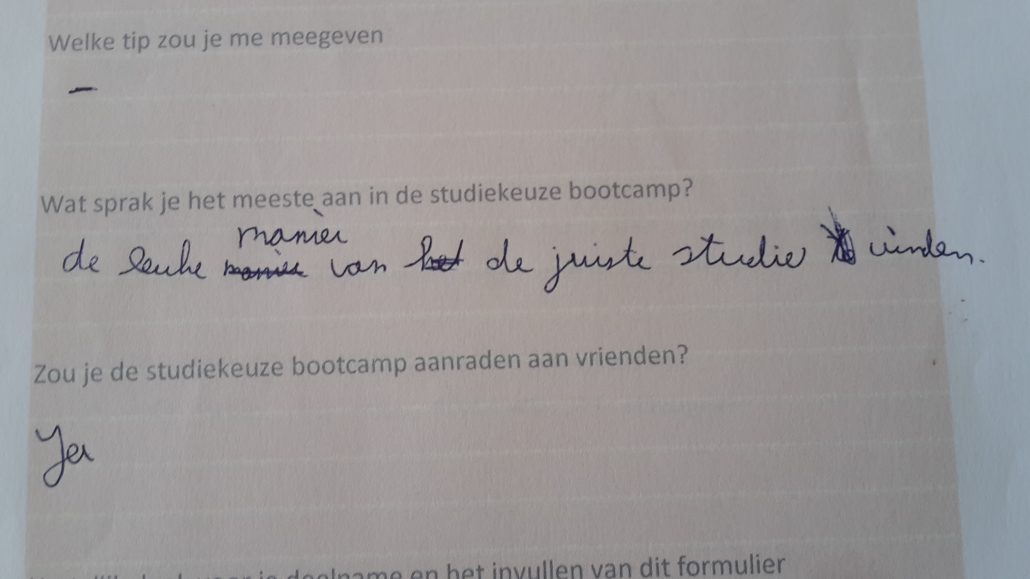 Welke tip zou je me meegeven
–
Wat sprak je het meeste aan in de studiekeuze bootcamp?
manier
de leuke van de juiste studie vinden.
Zou je de studiekeuze bootcamp aanraden aan vrienden?
Ja
deelname en het invullen van dit formulier